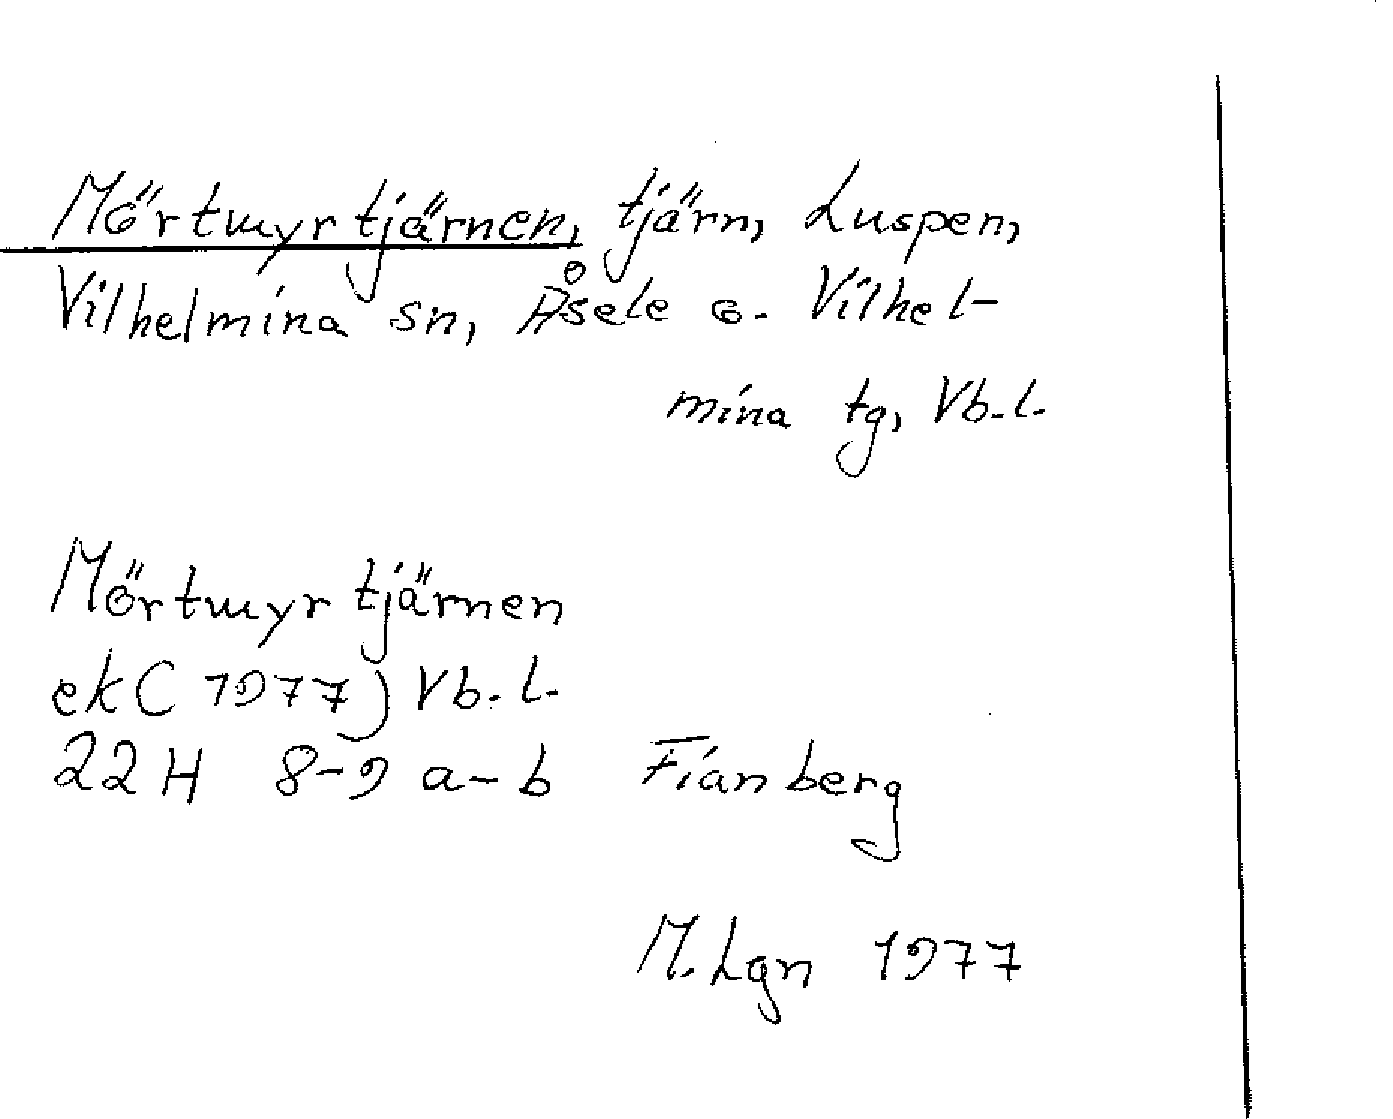 Mörtmyrtjärnen, tjärn, Luspen,
Vilhelmina sn, Åsele o. Vilhel-
mina tg, Vb.l.
Mörtmyrtjärnen
ek (1977) Vb.l.
22H 8-9 a-b Fianberg
M. Lgn 1977